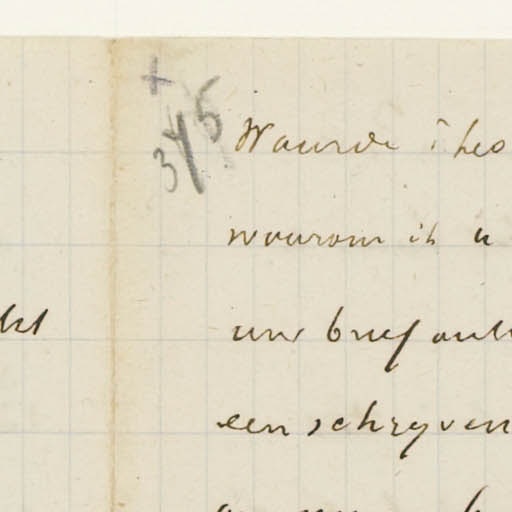 345
Waarde Theo
waarom ik u
uw brief
een schryven